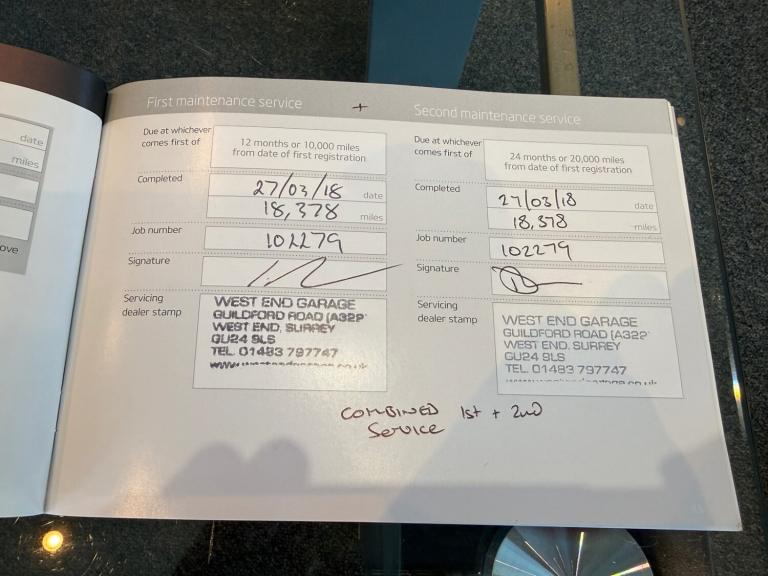 date
miles
ove
First maintenance service
+
Second maintenance service
Due at whichever comes first of
12 months or 10,000 miles
from date of first registration
Completed
27/03/18 date
18,378 miles
Job number
102279
Signature
Servicing
dealer stamp
WEST END GARAGE
GUILDFORD ROAD (A322)
WEST END, SURREY
GU24 9LS
TEL. 01483 797747
Due at whichever
comes first of
24 months or 20,000 miles
from date of first registration
Completed
27/03/18 date
18,378 miles
Job number
102279
Signature
Servicing
dealer stamp
WEST END GARAGE
GUILDFORD ROAD (A322)
WEST END. SURREY
GU24 9LS
TEL. 01483 797747
COMBINED 1st + 2nd
Service